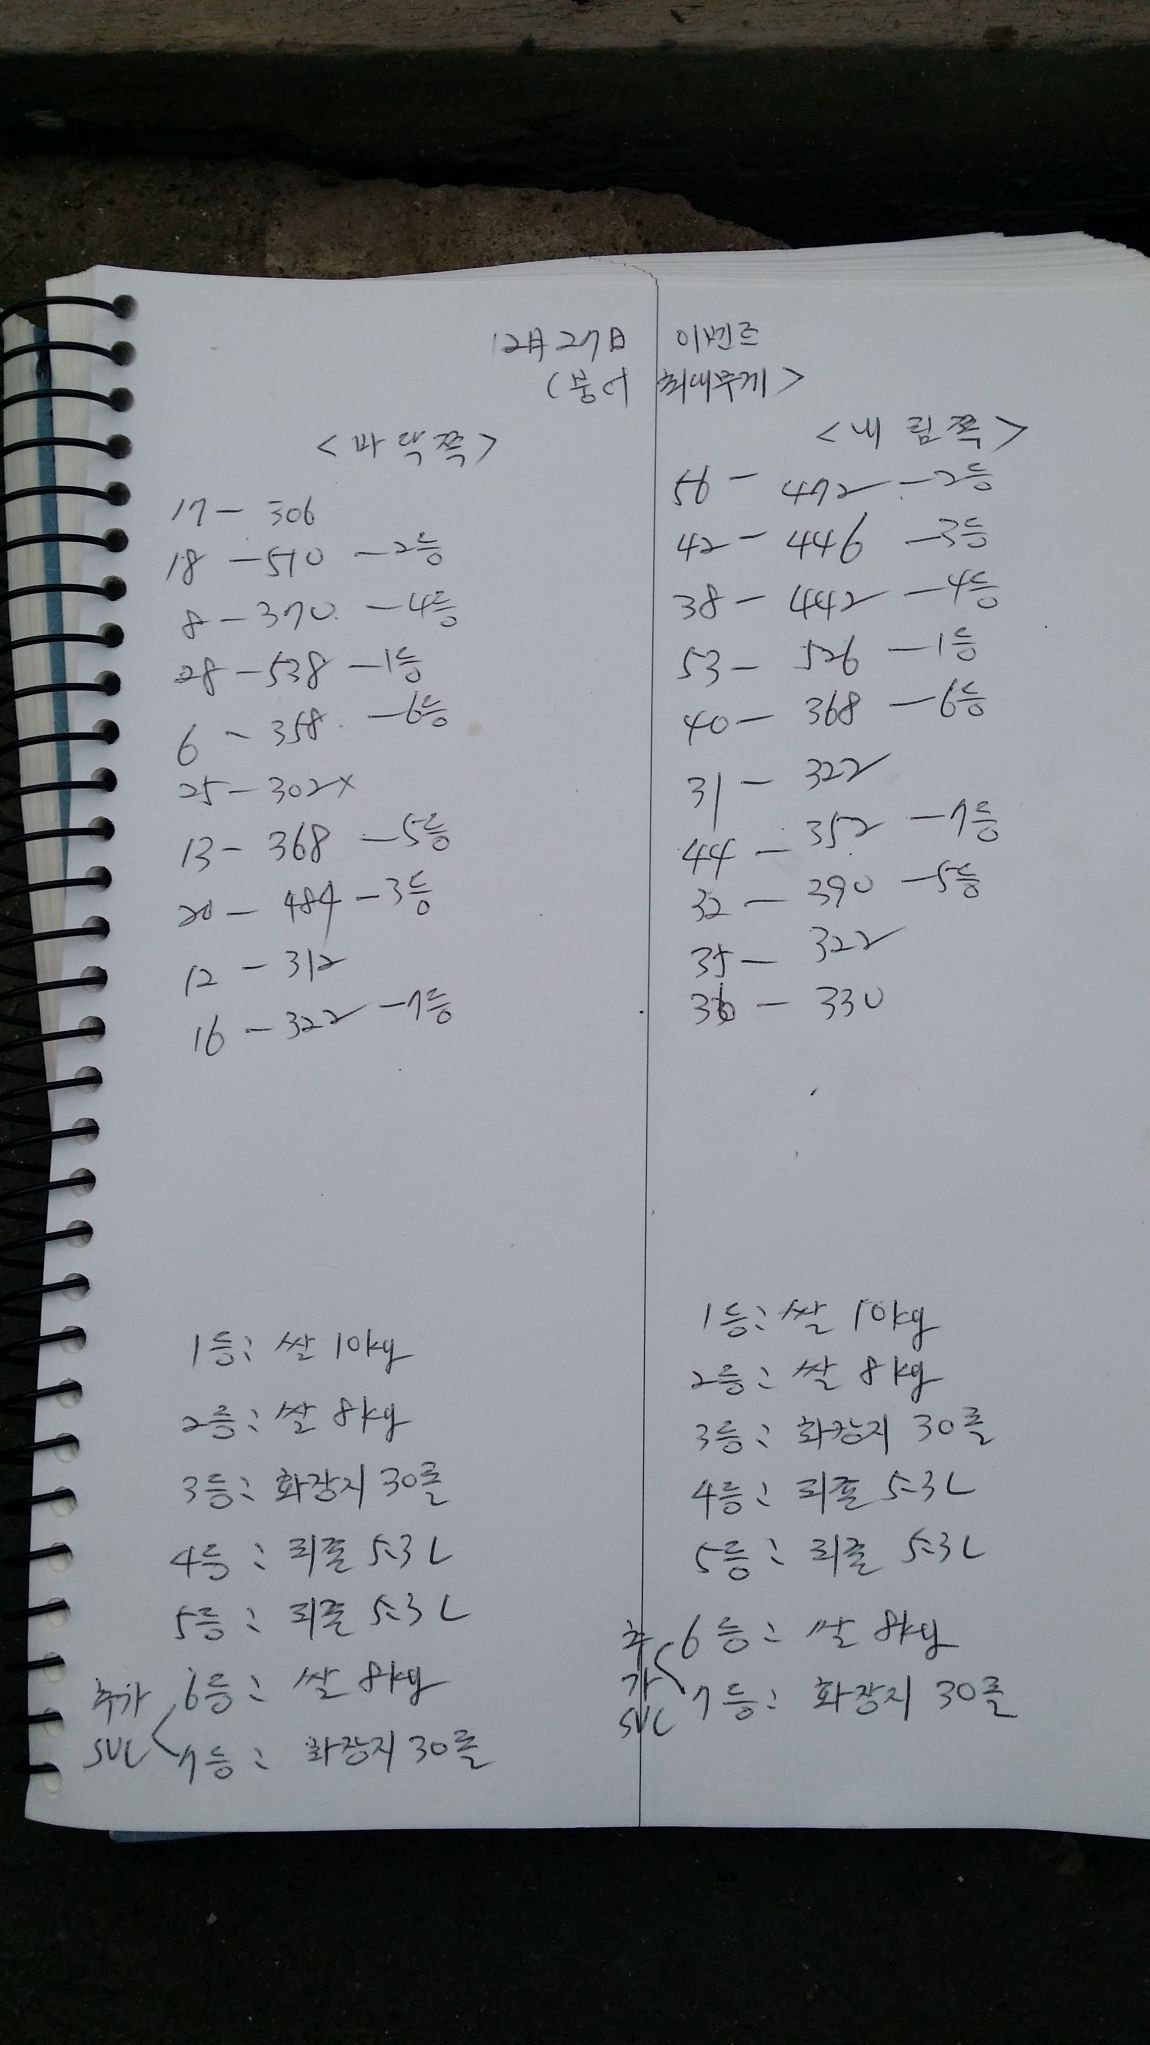 12月27日 이벤트
(붕어 최대무게>
<바닥쪽>
17 - 306
18 - 510 - 2등
8 - 370 - 4등
28 - 538 - 1등
6 - 358 - 6등
25 - 302 x
13 - 368 - 5등
20 - 484 - 3등
12 - 312
16 - 322 - 7등
1등: 쌀 10kg
2등: 쌀 8kg
3등: 화장지 30롤
4등: 리졸 5.3L
5등: 리졸 5.3L
추가 SVC
6등: 쌀 8kg
7등: 화장지 30롤
<내림쪽>
56 - 472 - 2등
42 - 446 - 3등
38 - 442 - 4등
53 - 526 - 1등
40 - 368 - 6등
31 - 322
44 - 352 - 7등
32 - 390 - 5등
35 - 322
36 - 330
1등: 쌀 10kg
2등: 쌀 8kg
3등: 화장지 30롤
4등: 리졸 5.3L
5등: 리졸 5.3L
추가 SVC
6등: 쌀 8kg
7등: 화장지 30롤